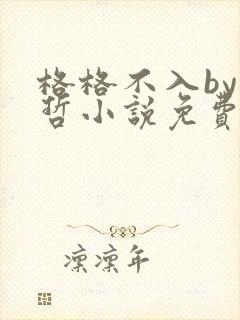 格格不入by
哲小説免費
凛凛年